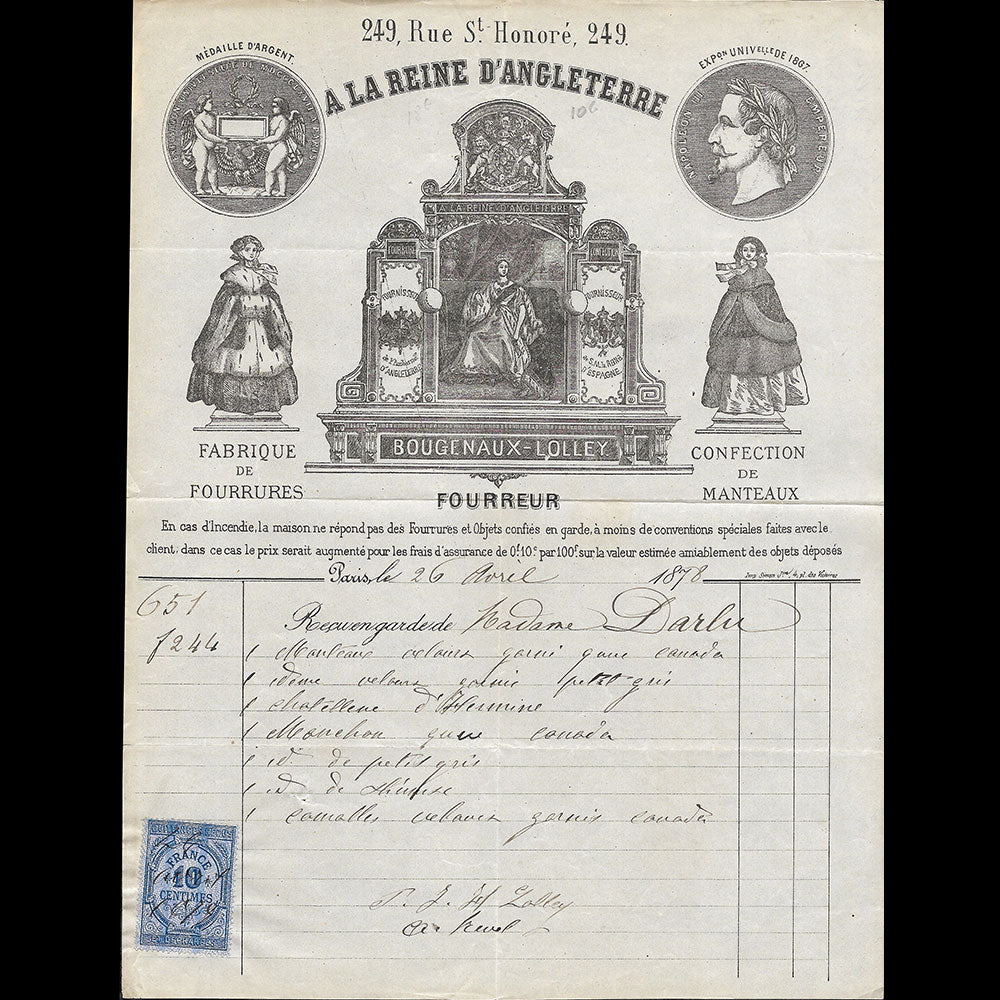 249, Rue St. Honoré, 249.
MÉDAILLE D'ARGENT.
EXPon UNIVelle DE 1867.
A LA REINE D'ANGLETERRE
NAPOLEON III EMPEREUR
A LA REINE D'ANGLETERRE
FOURRURES
CONFECTION
FOURNISSEUR
D'ANGLETERRE
FOURNISSEUR
de S.M. la Reine
D'ESPAGNE
BOUGENAUX-LOLLEY
FABRIQUE
DE
FOURRURES
CONFECTION
DE
MANTEAUX
FOURREUR
En cas d'Incendie, la maison ne répond pas des Fourrures et Objets confiés en garde, à moins de conventions spéciales faites avec le
client, dans ce cas le prix serait augmenté pour les frais d'assurance de 0f.10c. par 100f. sur la valeur estimée amiablement des objets déposés
Paris, le 26 Avril 1878
651
f 244
Reçu en garde de Madame Darlu
1 Manteaux velours garni canada
1 idem velours garnis petit-gris
1 d'Hermine
1 Manchon canada
1 id de petit gris
1 d de
1 velours garnis canada
Lolley
QUITTANCES REÇUS
FRANCE
10
CENTIMES
ET DÉCHARGES